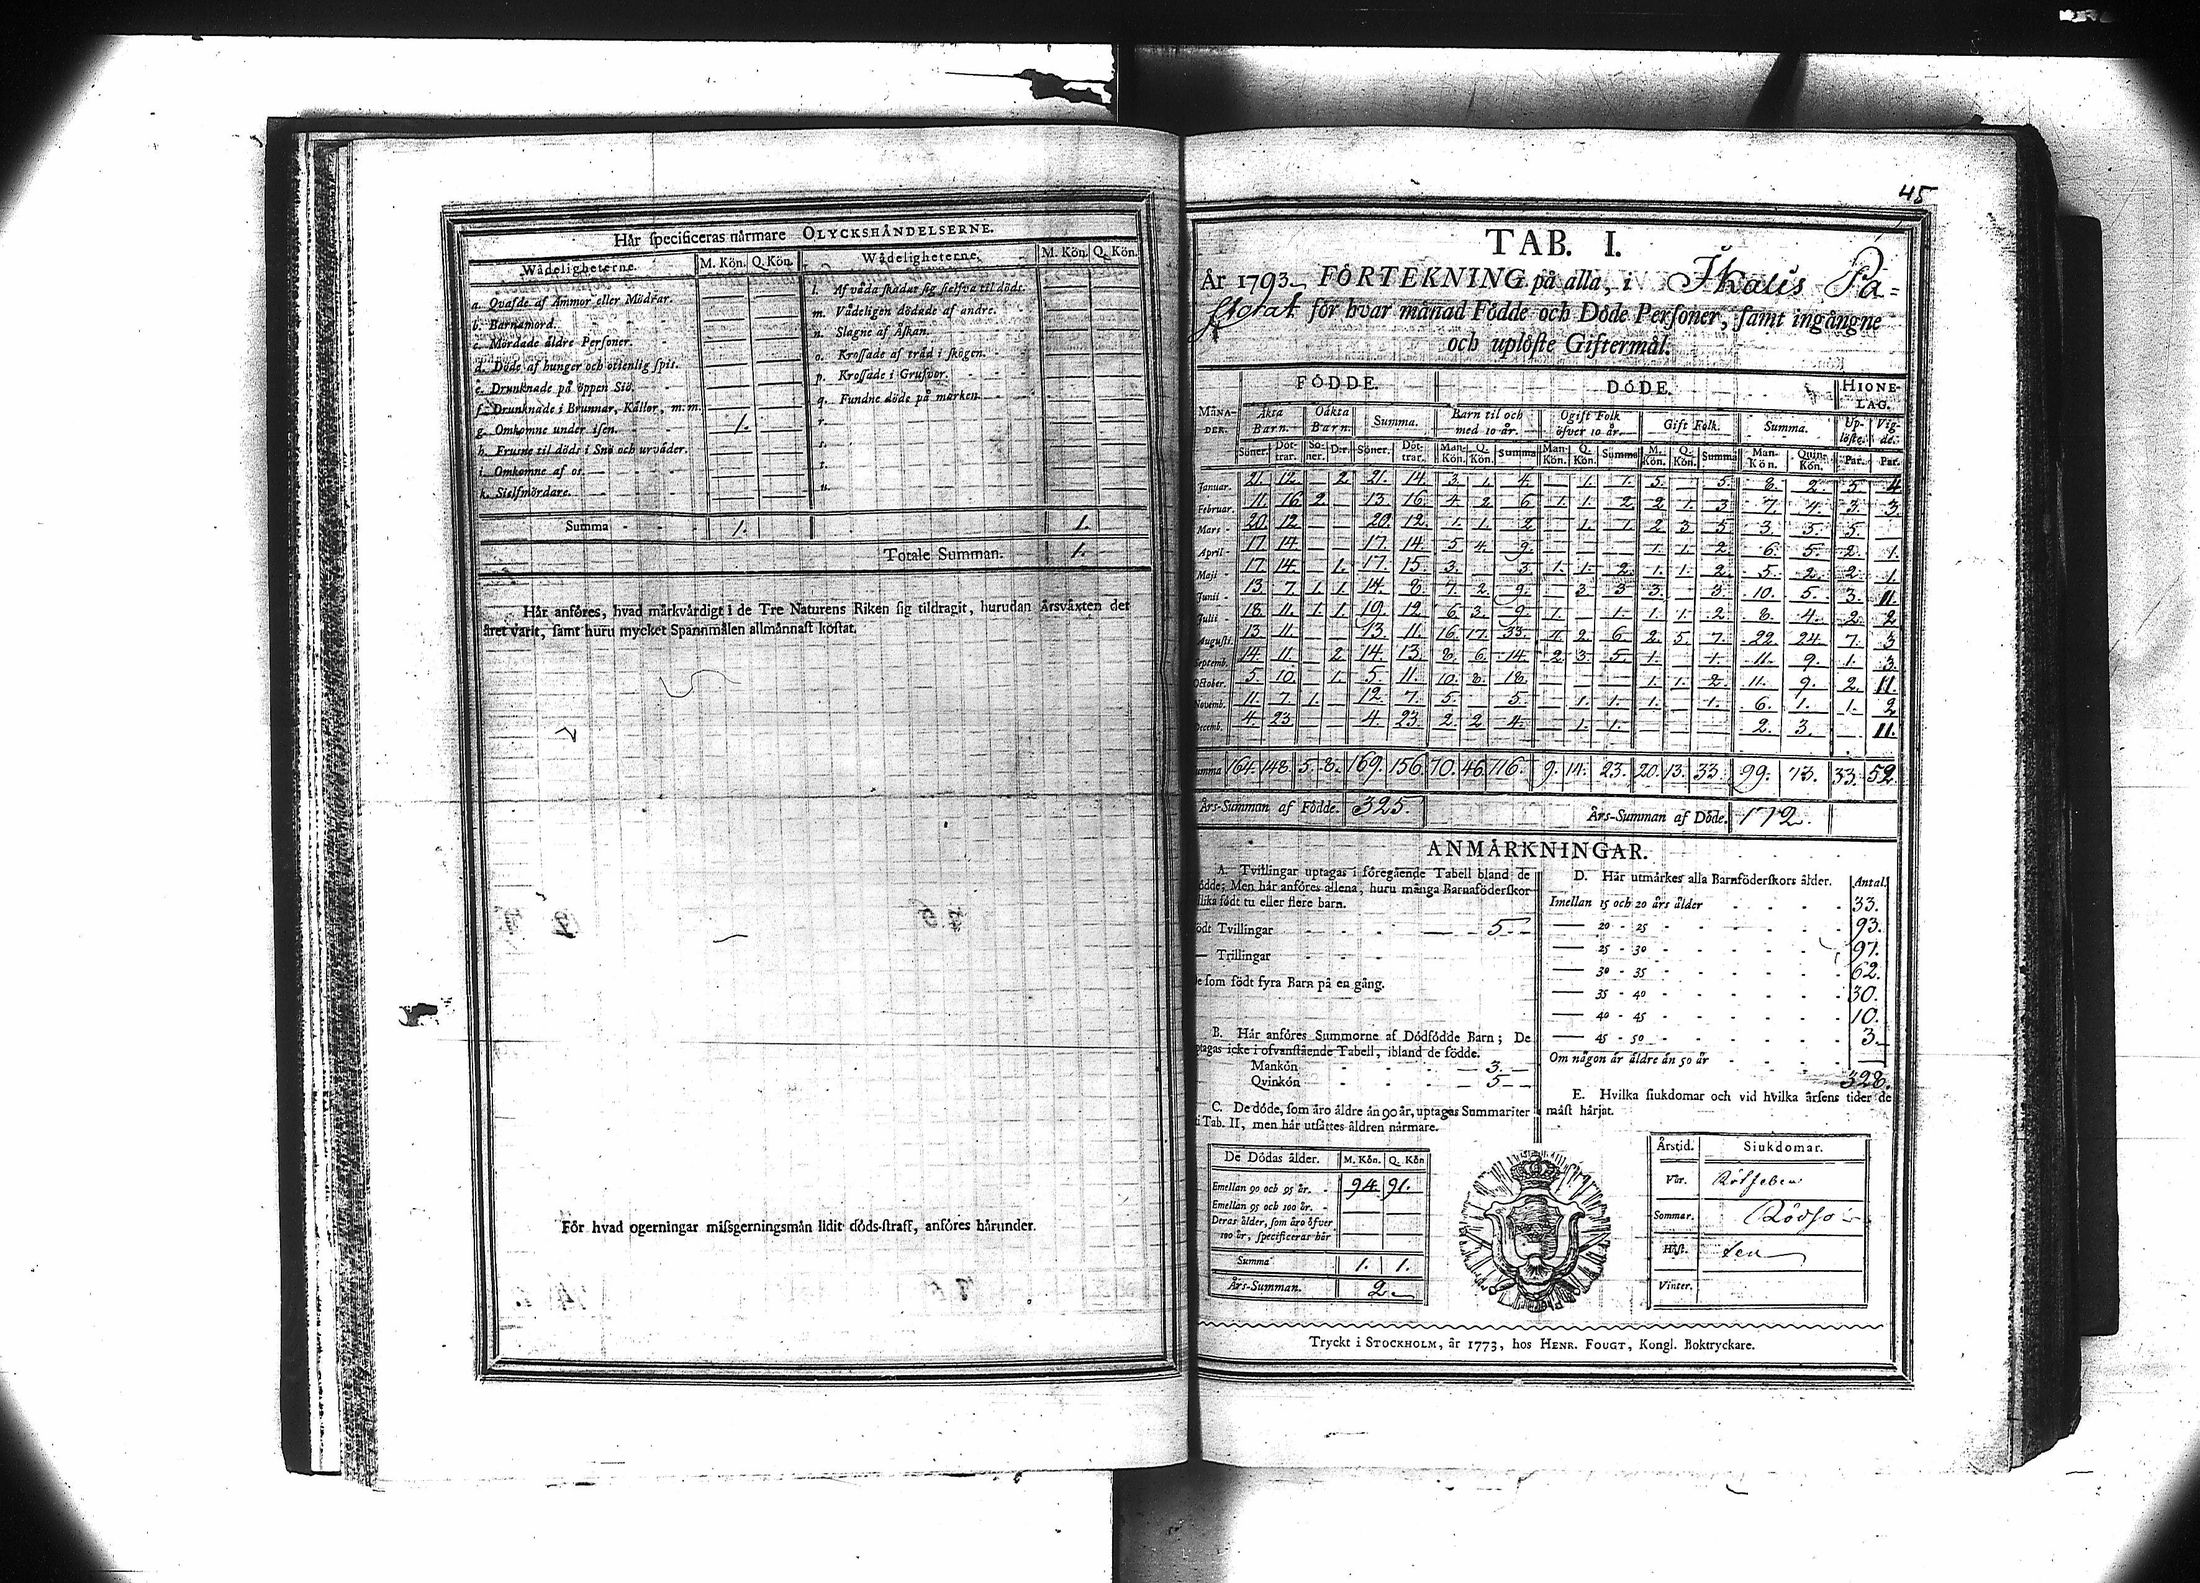 Hår specificeras nårmare OLYCKSHÅNDELSERNE.
Wådeligheterne. M. Kön. Q. Kön. Wådeligheterne. M. Kön. Q. Kön.
a. Qvafde af Ammor eller Mödrar. — — l. Af våda skadat sig sielfva til döds. — —
b. Barnamord. — — m. Vådeligen dödade af andre. — —
c. Mördade åldre Personer. — — n. Slagne af Åskan. — —
d. Döde af hunger och otienlig spis. — — o. Krossade af tråd i skogen. — —
e. Drunknade på öppen Siö. — — p. Krossade i Grufvor. — —
f. Drunknade i Brunnar, Kållor, m: m. — — q. Fundne döde på marken. — —
g. Omkomne under isen. 1. — r.
h. Frusne til döds i Snö och urvåder. — — s.
i. Omkomne af os. — — t.
k. Sielfmördare. — — u.
Summa 1. 1.
Totale Summan. 1.
Hår anföres, hvad mårkvårdigt i de Tre Naturens Riken sig tildragit, hurudan Årsvåxten det
året varit, samt huru mycket Spannmålen allmånnast kostat.
För hvad ogerningar missgerningsmån lidit döds-straff, anföres hårunder.
45
TAB. I.
År 1793 FÖRTEKNING på alla, i Ikalis Pa=
storat för hvar månad Födde och Döde Personer, samt ingångne
och uplöste Giftermål.
FÖDDE. DÖDE. HIONE-LAG.
MÅNA-DER. Åkta Barn. Oåkta Barn. Summa. Barn til och med 10 år. Ogift Folk öfver 10 år. Gift Folk. Summa. Up-löste. Vig-de.
Söner. Döt-trar. Sö-ner. D:r. Söner. Döt-trar. Man-Kön. Q. Kön. Summa Man-Kön. Q. Kön. Summa M. Kön. Q. Kön. Summa Man-Kön. Quin-Kön. Par. Par.
Januar. 21. 12. — 2 21. 14. 3. 1. 4. — 1. 1. 5. — 5. 8. 2. 5 4
Februar. 11. 16 2. — 13 16. 4. 2 6 1. 1. 2 2 1. 3 7 4. 3. 3.
Mars 20. 12 — — 20. 12. 1. 1. 2 — 1. 1. 2 3 5 3. 5. 5. —
April 17 14. — — 17. 14 5 4. 9. — — — 1. 1. 2. 6. 5. 2. 1.
Maji 17 14. — 1. 17. 15. 3. — 3. 1. 1. 2 1. 1. 2. 5. 2 2 1
Junii 13. 7 1. 1 14. 8 7. 2 9. — 3 3 3. — 3. 10. 5. 3. 11.
Julii 18. 11. 1 1 19. 12 6 3. 9. 1. — 1. 1. 1. 2 8. 4. 2 2
Augusti. 13 11. — — 13. 11. 16. 17. 33. 4. 2. 6. 2. 5. 7. 22 24. 7. 3
Septemb. 14. 11. — 2. 14. 13. 8. 6. 14. 2 3. 5. 1. — 1. 11. 9. 1. 3.
October. 5. 10. — 1. 5. 11. 10. 8. 18. — — — 1. 1. 2. 11. 9. 2. 11.
Novemb. 11. 7 1. — 12. 7. 5. — 5. — 1. 1. 1. — 1. 6. 1. 1. 2
Decemb. 4. 23 — — 4. 23. 2. 2 4. — 1. 1. — — — 2. 3. — 11.
Summa 164. 148. 5. 8. 169. 156. 70. 46. 116. 9. 14. 23. 20. 13. 33. 99. 73. 33. 52.
Års-Summan af Födde. 325. Års-Summan af Döde. 172.
ANMÅRKNINGAR.
A. Tvillingar uptagas i föregående Tabell bland de
födde; Men hår anföres allena, huru många Barnaföderskor
lika födt tu eller flere barn.
födt Tvillingar 5
— Trillingar
De som födt fyra Barn på en gång.
B. Hår anföres Summorne af Dödfödde Barn; De
uptagas icke i ofvanstående Tabell, ibland de födde.
Mankön 3.
Qvinkön 5
C. De döde, som åro åldre ån 90 år, uptagas Summariter
i Tab. II, men hår utsåttes åldren nårmare.
De Dödas ålder. M. Kön. Q. Kön
Emellan 90 och 95 år. 94. 91.
Emellan 95 och 100 år.
Deras ålder, som åro öfver
100 år, specificeras hår
Summa 1. 1.
Års-Summan. 2
D. Hår utmårkes alla Barnföderskors ålder. Antal.
Imellan 15 och 20 års ålder 33.
— 20 - 25 93.
— 25 - 30 97.
— 30 - 35 62.
— 35 - 40 30.
— 40 - 45 10.
— 45 - 50 3.
Om någon år åldre ån 50 år —
328.
E. Hvilka siukdomar och vid hvilka årsens tider de
måst hårjat.
Årstid. Siukdomar.
Vår. Rötfeber
Sommar. Rödso
Höst. ten
Vinter.
Tryckt i STOCKHOLM, år 1773, hos HENR. FOUGT, Kongl. Boktryckare.